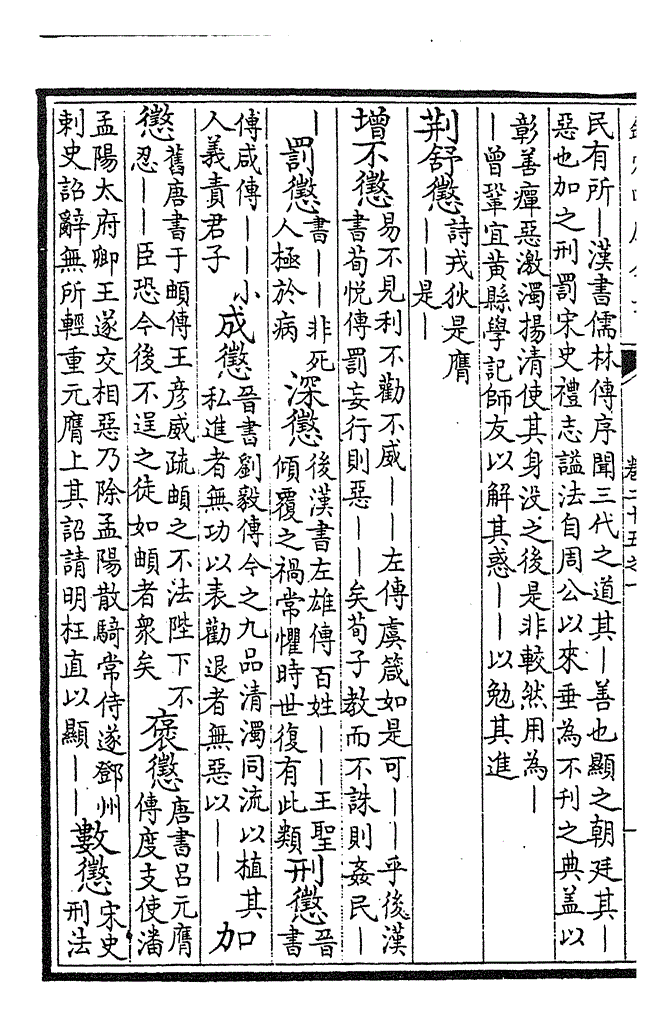 卷二十五之一
民有所〡漢書儒林傳序聞三代之道其〡善也顯之朝廷其〡
惡也加之刑罰宋史禮志謚法自周公以來垂為不刊之典盖以
彰善癉惡激濁揚清使其身没之後是非較然用為〡
〡曾鞏宜黄縣學記師友以解其惑〡〡以勉其進
荆舒懲
詩戎狄是膺
〡〡是〡
增不懲
易不見利不勸不威〡〡左傳虞箴如是可〡〡乎後漢
書荀悅傳罰妄行則惡〡〡矣荀子教而不誅則姦民〡
〡
罰懲
書〡〡非死
人極於病
深懲
後漢書左雄傳百姓〡〡王聖
傾覆之禍常懼時世復有此類
刑懲
晉
書
傅咸傳〡〡小
人義責君子
成懲
晉書劉毅傳今之九品清濁同流以植其
私進者無功以表勸退者無惡以〡〡
加
懲
舊唐書于頔傳王彦威疏頔之不法陛下不
忍〡〡臣恐今後不逞之徒如頔者衆矣
褒懲
唐書吕元膺
傳度支使潘
孟陽太府卿王遂交相惡乃除孟陽散騎常侍遂鄧州
刺史詔辭無所輕重元膺上其詔請明枉直以顯〡〡
數懲
宋史
刑法